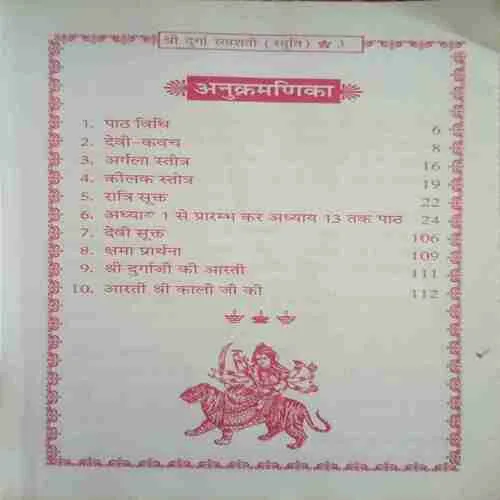 श्री दुर्गा सप्तशती ( स्तुति ) 3
अनुक्रमणिका
1. पाठ विधि 6
2. देवी-कवच 8
3. अर्गला स्तोत्र 16
4. कीलक स्तोत्र 19
5. रात्रि सूक्त 22
6. अध्याय 1 से प्रारम्भ कर अध्याय 13 तक पाठ 24
7. देवी सूक्त 106
8. क्षमा प्रार्थना 109
9. श्री दुर्गाजी की आरती 111
10. आरती श्री काली जी की 112